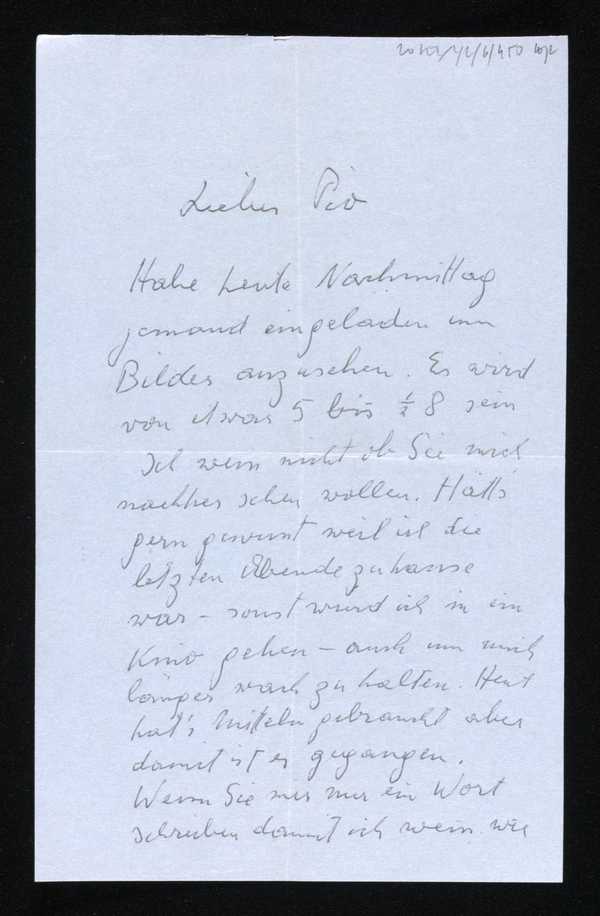 Lieber Pio
Habe heute Nachmittag
jemand eingeladen um
Bilder anzusehen. Es wird
von etwas 5 bis ½ 8 sein
Ich weiss nicht ob Sie mich
nachher sehen wollen. Hätt's
gern gewusst weil ich die
letzten Abende zuhause
war – sonst würd ich in ein
Kino gehen – auch um mich
länger wach zu halten. Heut
hat's Mitteln gebraucht aber
damit ist es gegangen.
Wenn Sie mir nur ein Wort
schreiben damit ich weiss wie